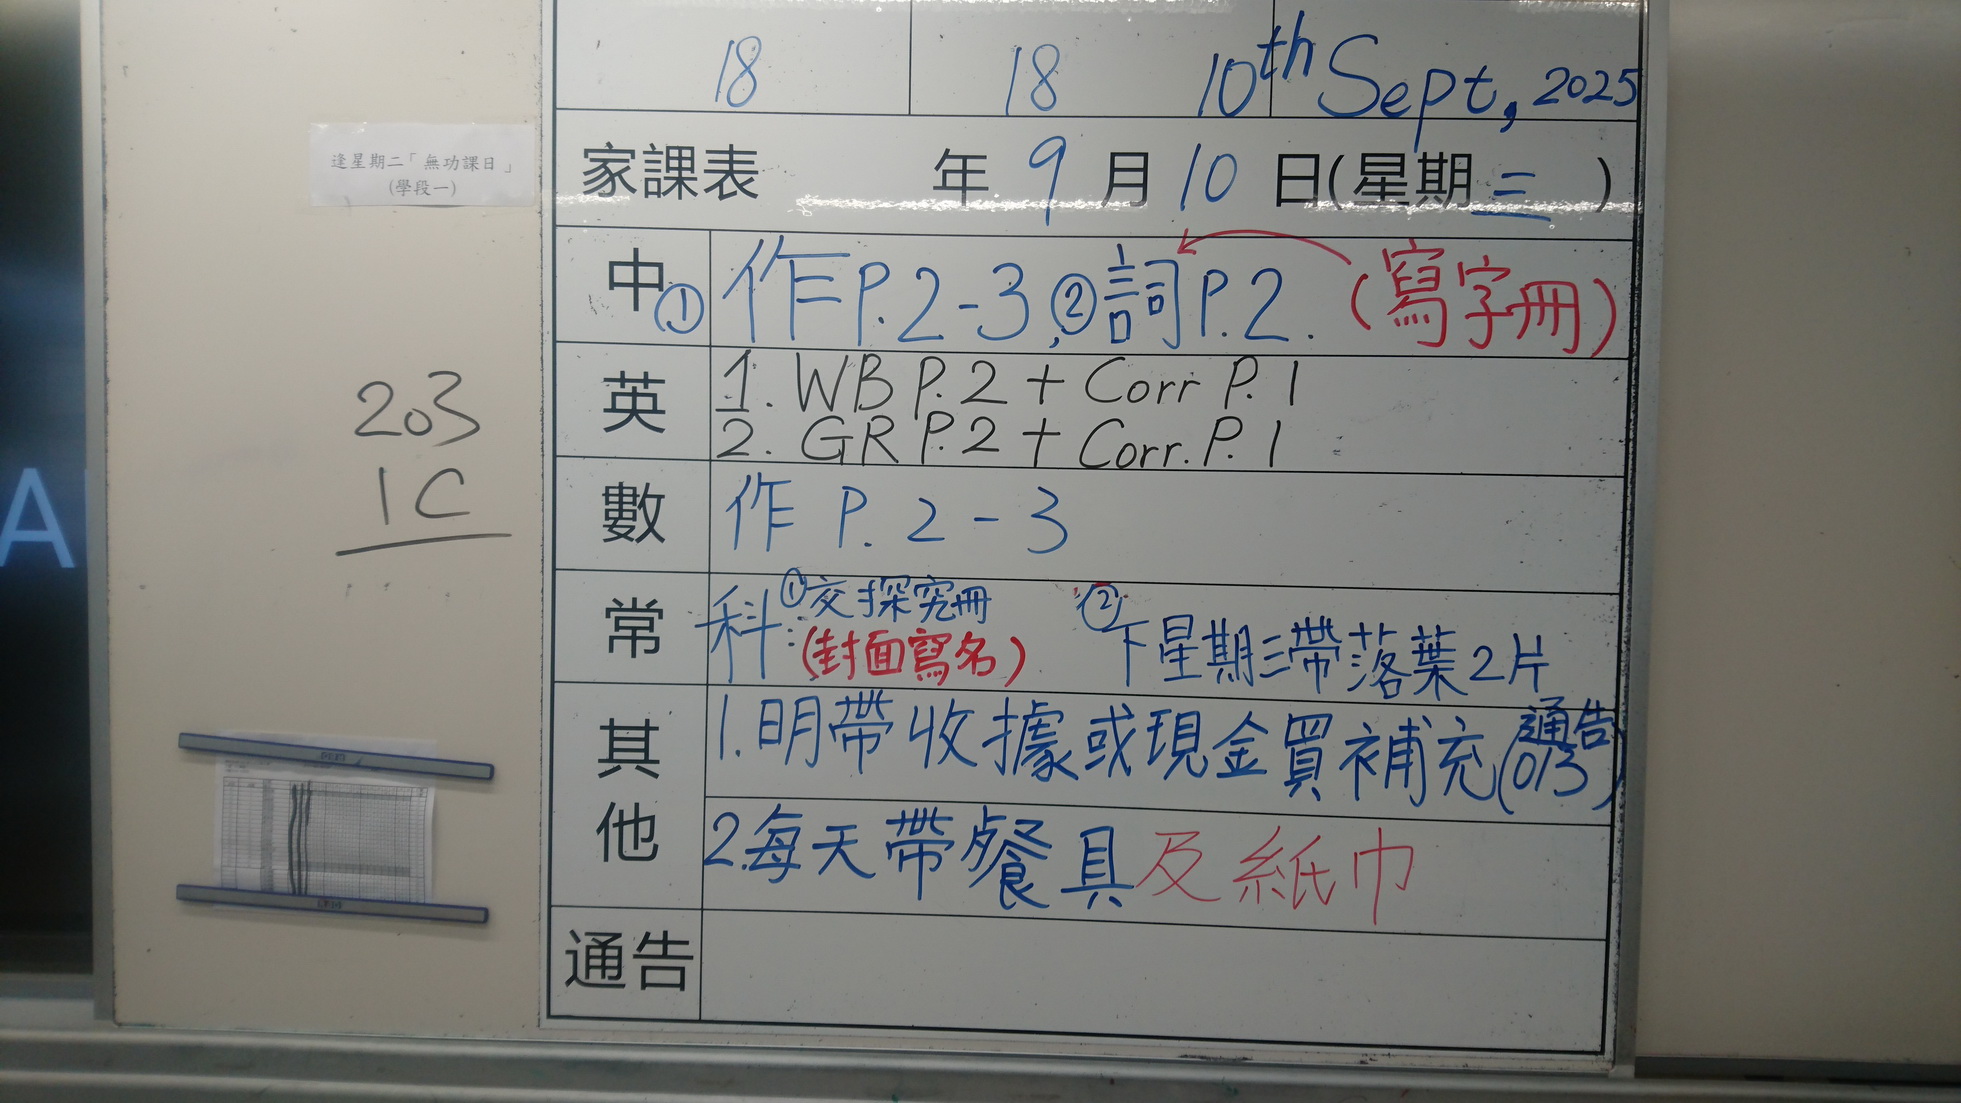 18 18 10th Sept, 2025
逢星期二「無功課日」
(學段一)
家課表 年 9 月 10 日(星期三)
中 ①作P.2-3,②詞P.2. (寫字冊)
英 1. WB P.2 + Corr P.1
2. GR P.2 + Corr. P.1
203
1C
數 作 P. 2 - 3
A
常 科:①交探究冊 ②下星期三帶落葉2片
(封面寫名)
其他 1.明帶收據或現金買補充(通告013)
2.每天帶餐具及紙巾
通告